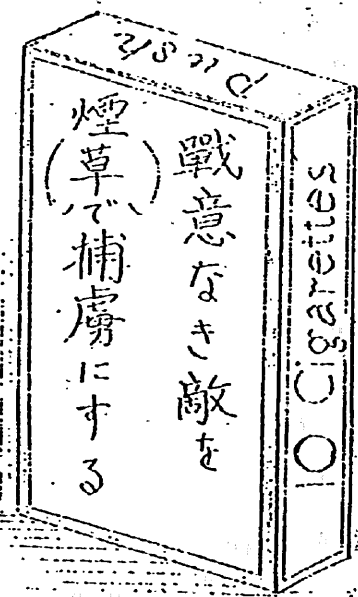 戰意なき敵を
煙(草)で捕虜にする
10 Cigarettes